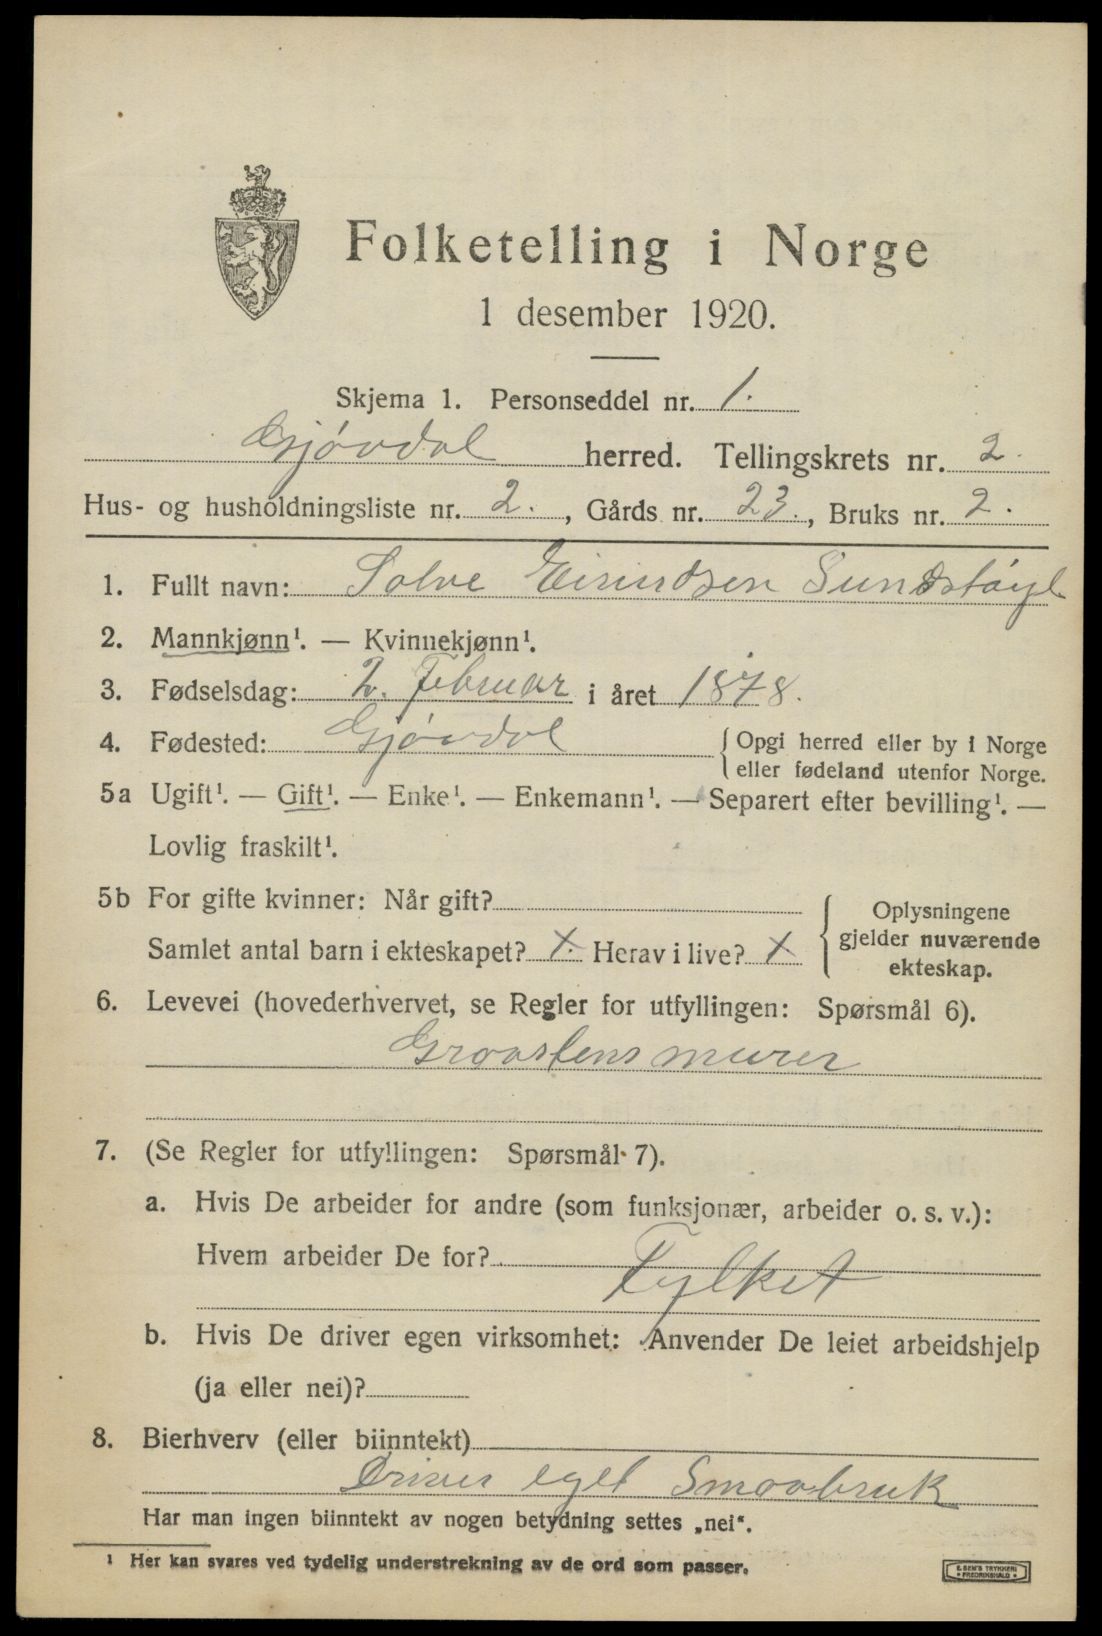 Folketelling i Norge
1 desember 1920.
Skjema 1. Personseddel nr. 1.
Gjövdal herred. Tellingskrets nr. 2.
Hus- og husholdningsliste nr. 2., Gårds nr. 23., Bruks nr. 2.
1. Fullt navn: Solve Eivindsen Sundstöyl
2. Mannkjønn¹. — Kvinnekjønn¹.
3. Fødselsdag: 2. Februar i året 1878.
4. Fødested: Gjövdal {Opgi herred eller by i Norge
eller fødeland utenfor Norge.
5a Ugift¹. — Gift¹. — Enke¹. — Enkemann¹. — Separert efter bevilling¹. —
Lovlig fraskilt¹.
5b For gifte kvinner: Når gift?
Samlet antal barn i ekteskapet? X. Herav i live? X
{Oplysningene
gjelder nuværende
ekteskap.
6. Levevei (hovederhvervet, se Regler for utfyllingen: Spørsmål 6).
Graastensmurer
7. (Se Regler for utfyllingen: Spørsmål 7).
a. Hvis De arbeider for andre (som funksjonær, arbeider o. s. v.):
Hvem arbeider De for? Fylket
b. Hvis De driver egen virksomhet: Anvender De leiet arbeidshjelp
(ja eller nei)?
8. Bierhverv (eller biinntekt)
Driver eget Smaabruk
Har man ingen biinntekt av nogen betydning settes „nei“.
¹ Her kan svares ved tydelig understrekning av de ord som passer.
E. SEM'S TRYKKERI
• FREDRIKSHALD •